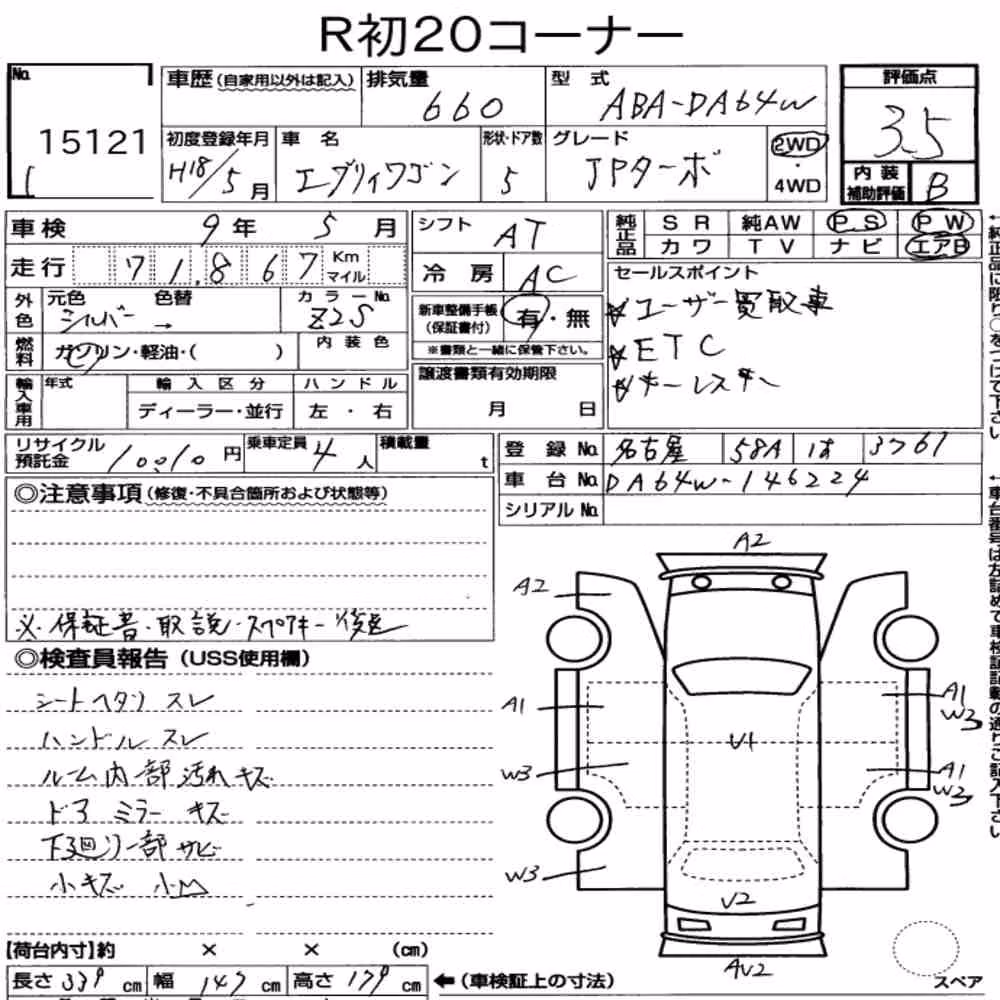 R初20コーナー
No. 15121
車歴(自家用以外は記入)
排気量 660
型式 ABA-DA64W
評価点 3.5
初度登録年月 H18/5月
車名 エブリィワゴン
形状・ドア数 5
グレード JPターボ
2WD・4WD
内装補助評価 B
車検 9年 5月
シフト AT
純正品 SR 純AW PS PW
カワ TV ナビ エアB
走行 71,867 Km マイル
冷房 AC
セールスポイント
ユーザー買取車
ETC
キーレスキー
外色 元色 シルバー 色替 →
カラーNo. Z2S
新車整備手帳(保証書付) 有・無
※書類と一緒に保管下さい。
燃料 ガソリン・軽油・( )
内装色
譲渡書類有効期限
月 日
輸入車用 年式 輸入区分 ハンドル
ディーラー・並行 左・右
リサイクル預託金 10010円
乗車定員 4人
積載量 t
登録No. 名古屋 58A は 3761
車台No. DA64W-146224
シリアルNo.
◎注意事項(修復・不具合箇所および状態等)
※保証書・取説・スペアキー後送
◎検査員報告(USS使用欄)
シートヘタリ スレ
ハンドル スレ
ルーム内部汚れ キズ
ドアミラー キズ
下廻り一部サビ
小キズ 小凹
A2
A2
A1
A1
W3
U1
W3
A1
W3
W3
U2
AU2
スペア
【荷台内寸】約 × × (cm)
長さ 339cm 幅 147cm 高さ 179cm
←(車検証上の寸法)
←純正品に限り○をつけて下さい
←車台番号は左詰めで車検証記載の通りご記入下さい